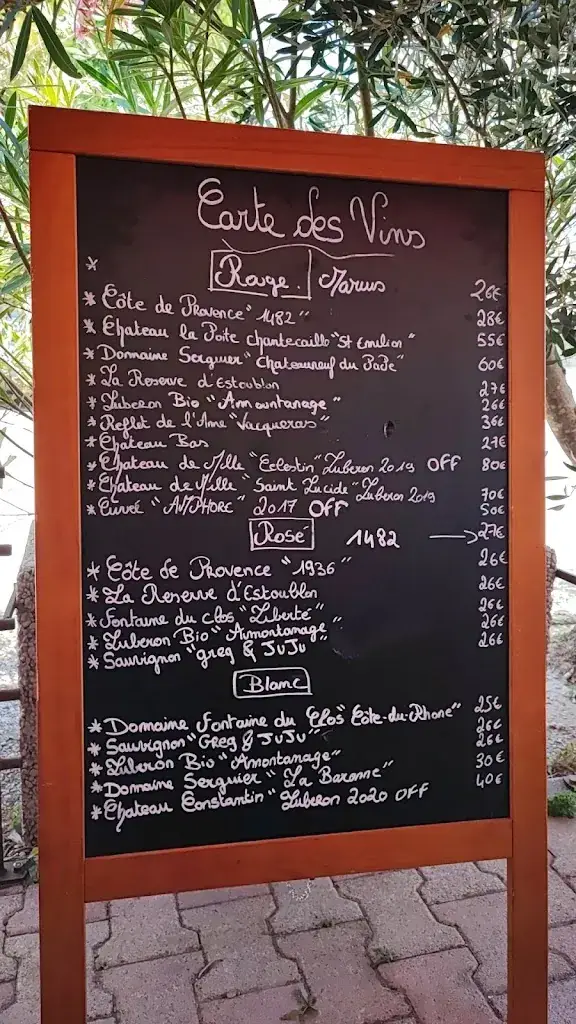 Carte des Vins
Rouge. Marius 26€
* Côte de Provence "1482" 28€
* Chateau la Poite chantecaille "St Emilion" 55€
* Domaine Serguier "Chateauneuf du Pape" 60€
* La Reserve d'Estoublon 27€
* Luberon Bio "Amountanage" 26€
* Reflet de l'Ame "Vacqueras" 36€
* Chateau Bas 27€
* Chateau de Mille "Celestin" Luberon 2019 OFF 80€
* Chateau de Mille "Saint Lucide" Luberon 2019 70€
* Cuvée "AMPHORE" 2017 OFF 50€
Rosé 1482 → 27€
* Côte de Provence "1936" 26€
* La Reserve d'Estoublon 26€
* Fontaine du clos "Liberté" 26€
* Luberon Bio "Amontanage" 26€
* Sauvignon "greg & JuJu" 26€
Blanc
* Domaine Fontaine du Clos "Côte-du-Rhone" 25€
* Sauvignon "Greg & JuJu" 26€
* Luberon Bio "Amontanage" 26€
* Domaine Serguier "La Baronne" 30€
* Chateau Constantin "Luberon 2020 OFF 40€